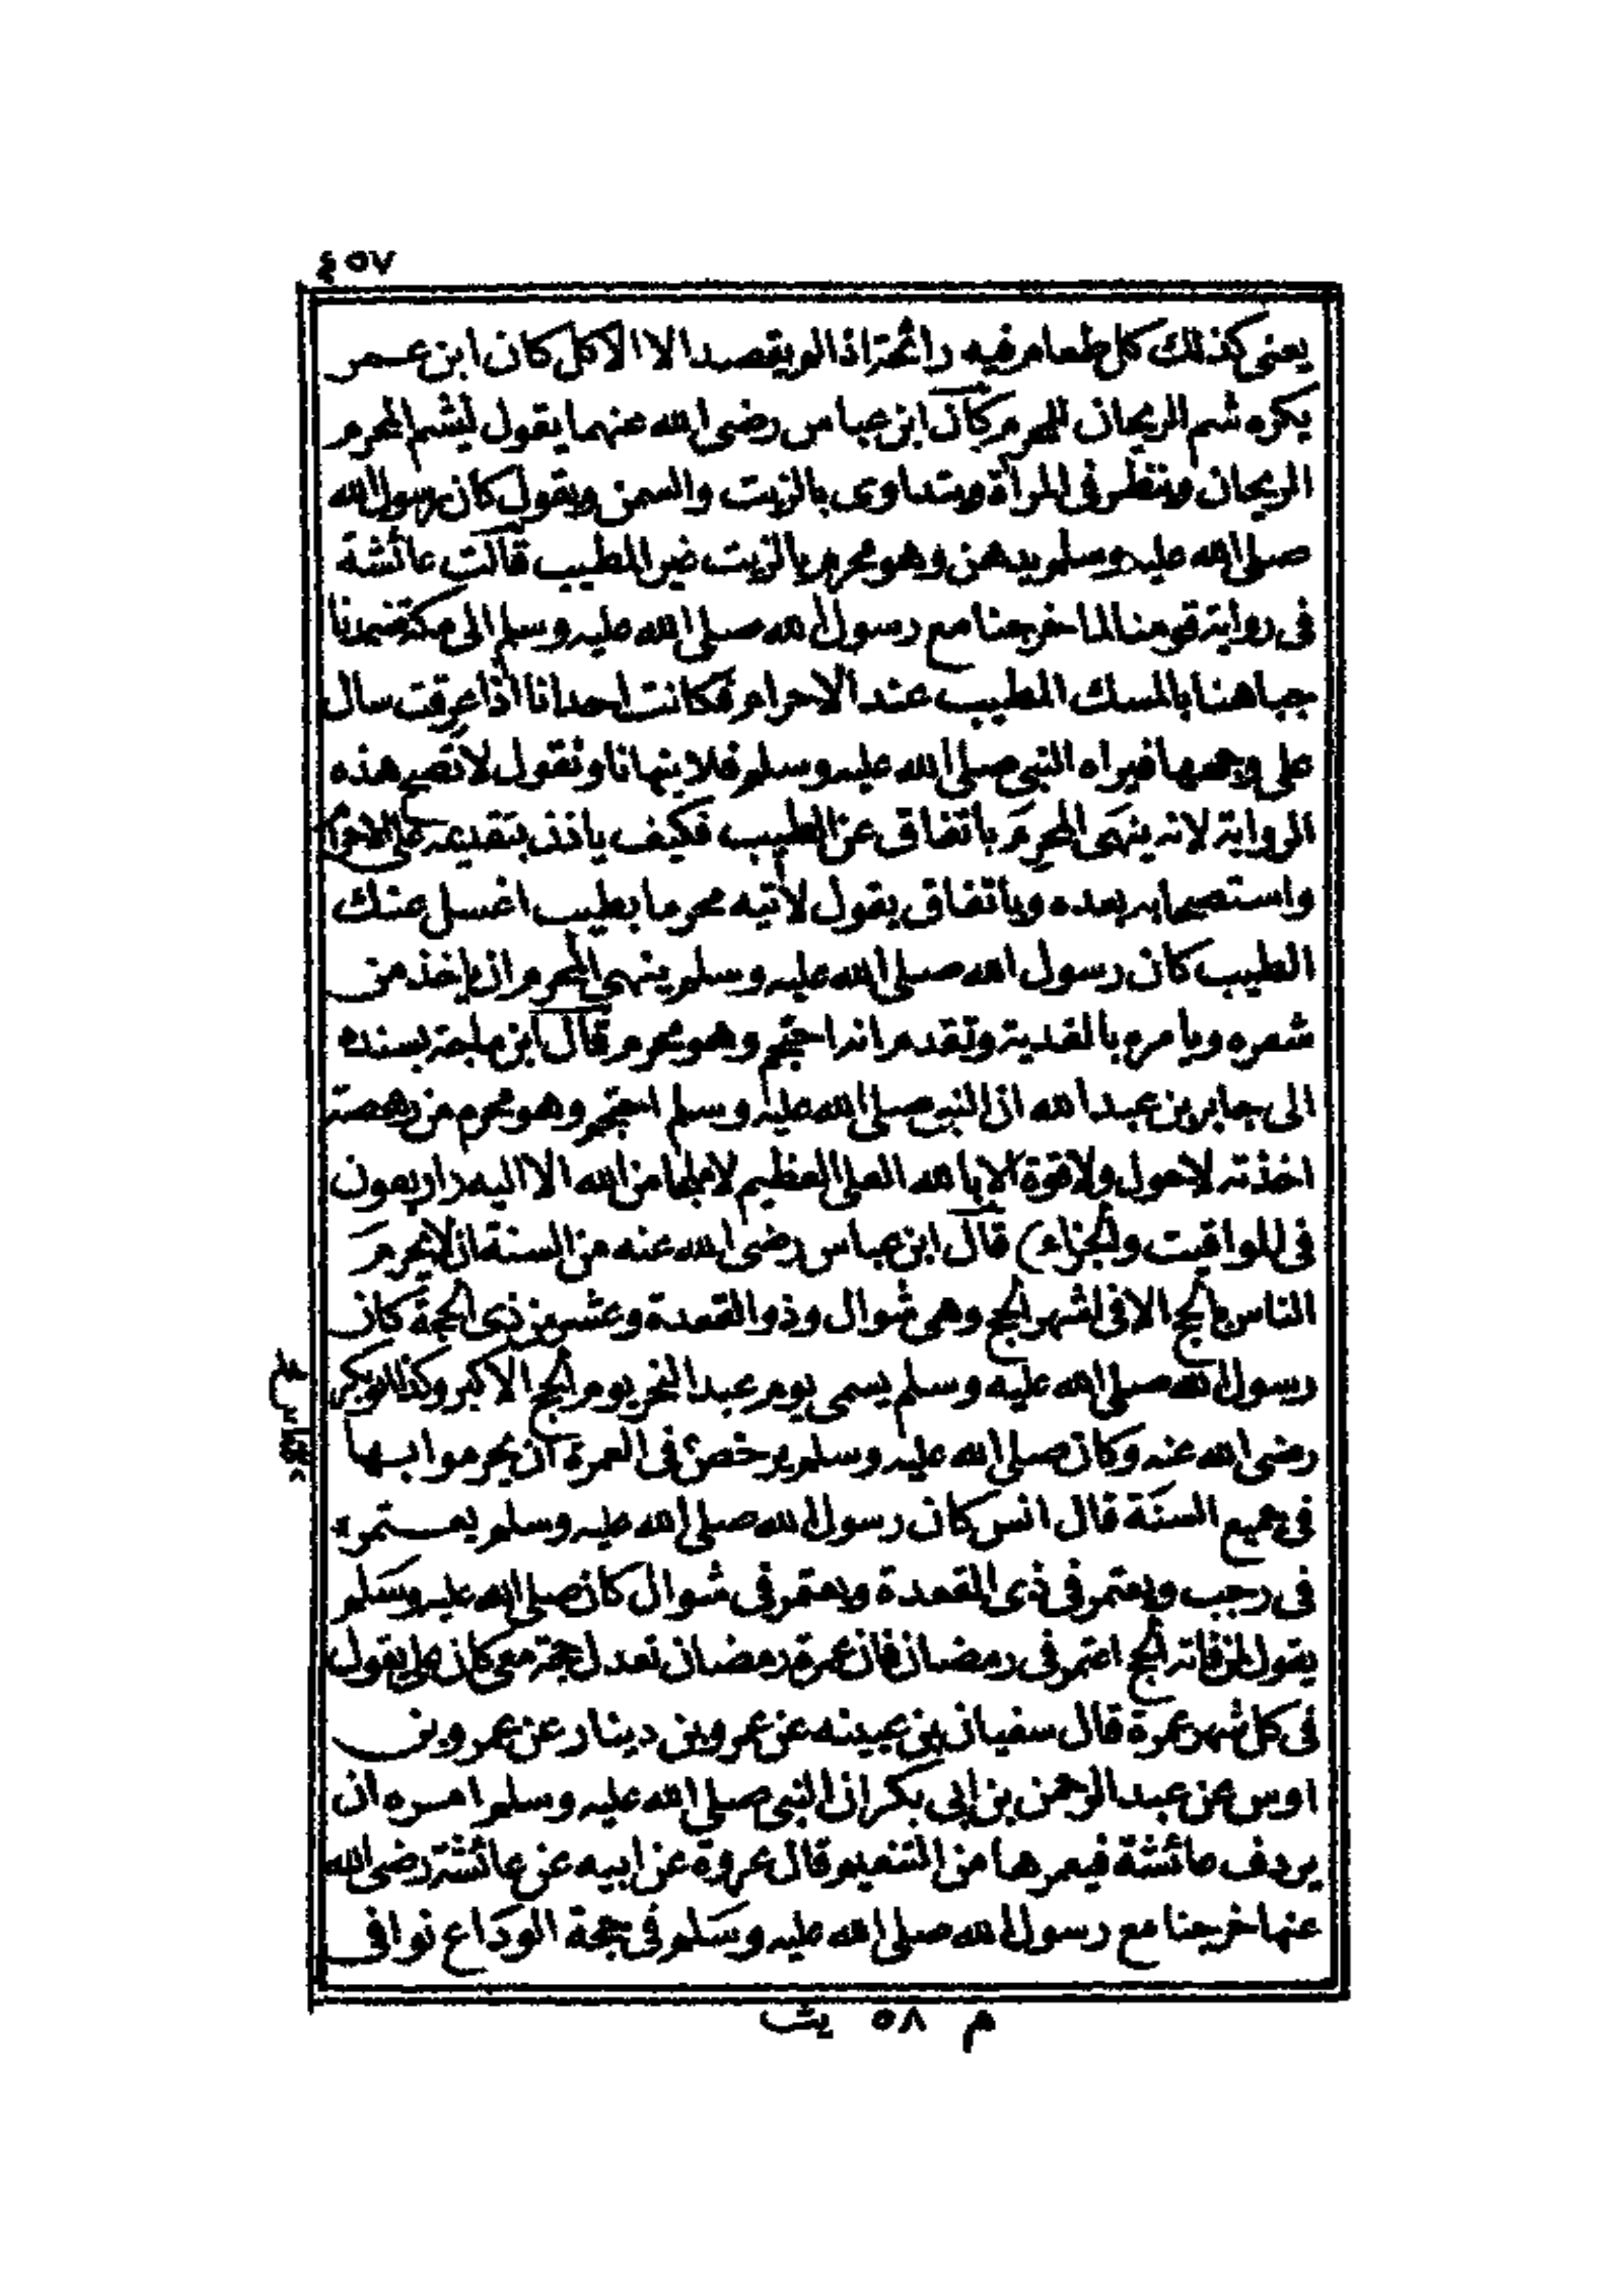 ٤٥٧
يعنى كذلك كل طعام فيه رائحة اذا لم يقصد الا الاكل كان ابن عمر
يكره شم الريحان للمحرم كان ابن عباس رضى الله عنهما يقول ليشم المحرم
الريحان وينظر فى المرآة ويتداوى بالزيت والسمن ويقول كان رسول الله
صلى الله عليه وسلم يدهن وهو محرم بالزيت غير المطيب قالت عائشة
فى رواية قومنا لما خرجنا مع رسول الله صلى الله عليه وسلم الى مكة ضمدنا
جباهنا بالمسك المطيب عند الاحرام فكانت احدانا اذا عرقت سال
على وجهها فيراه النبى صلى الله عليه وسلم فلا ينهانا ونقول لا تصح هذه
الرواية لانه ينهى المحرم باتفاق عن الطيب فكيف ياذن بتقديمه على الاحرام
واستصحابه بعده وباتفاق يقول لآتيه محرما بطيب اغسل عنك
الطيب كان رسول الله صلى الله عليه وسلم ينهى المحرم ان ياخذ من
شعره ويامره بالفدية وتقدم انه احتجم وهو محرم قال ابن ماجة بسنده
الى جابر بن عبد الله ان النبى صلى الله عليه وسلم احتجم وهو محرم من رهصة
اخذته لا حول ولا قوة الا بالله العلى العظيم لا ملجا من الله الا اليه ( اربعون
فى المواقيت والجزاء ) قال ابن عباس رضى الله عنه من السنة ان لا يحرم
الناس بالحج الا فى اشهر الحج وهى شوال وذو القعدة وعشر من ذى الحجة كان
رسول الله صلى الله عليه وسلم يسمى يوم عيد النحر يوم الحج الاكبر وكذا ابو بكر
رضى الله عنه وكان صلى الله عليه وسلم يرخص فى العمرة ان يحرموا بها
فى جميع السنة قال انس كان رسول الله صلى الله عليه وسلم يعتمر
فى رجب ويعتمر فى ذى القعدة ويعتمر فى شوال كان صلى الله عليه وسلم
يقول لمن فاته الحج اعتمر فى رمضان فان عمرة رمضان تعدل حجة معى كان على يقول
فى كل شهر عمرة قال سفيان بن عيينه عن عمرو بن دينار عن عمرو بن
اوس عن عبد الرحمن بن ابى بكر ان النبى صلى الله عليه وسلم امره ان
يردف عائشة فيعمرها من التنعيم وقال عروة عن ابيه عن عائشة رضى الله
عنها خرجنا مع رسول الله صلى الله عليه وسلم فى حجة الوداع نوافى
م ٥٨ يث